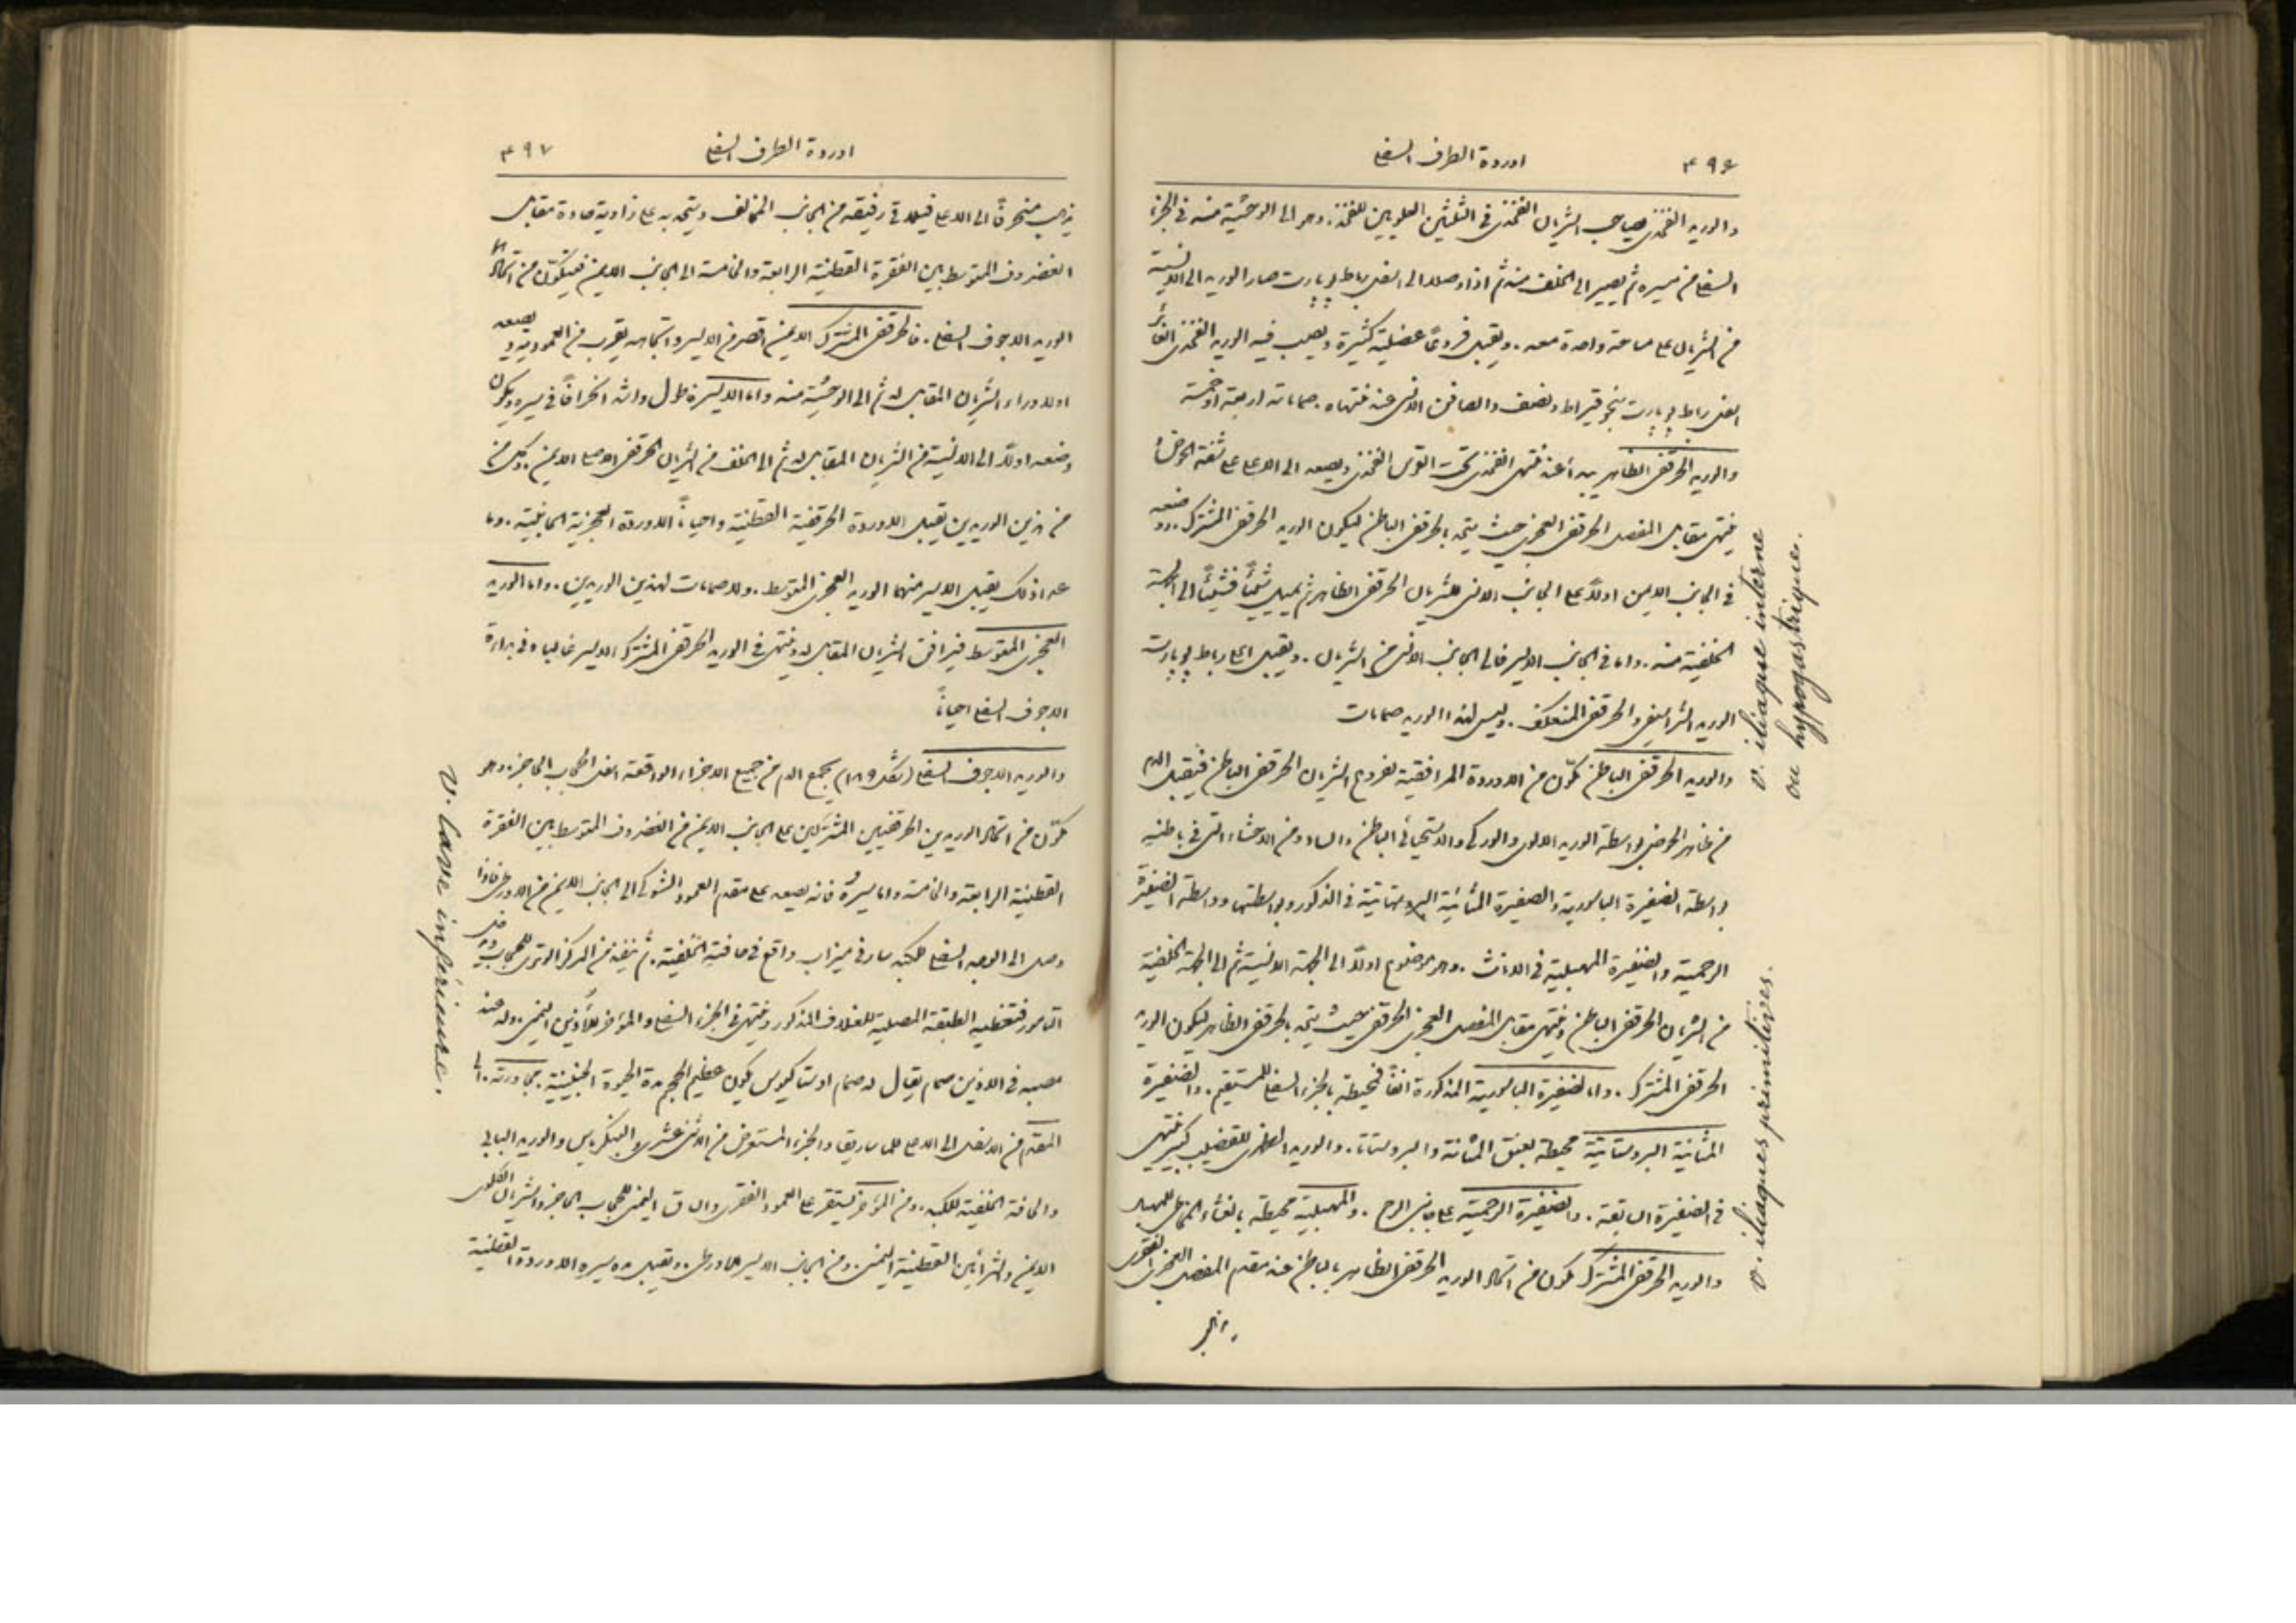 ٤٩٦ اوردة الطرف السفلي
والوريد الفخذي يصاحب الشريان الفخذي في الثلثين العلويين للفخذ . وهو الى الوحشية منه في الجزء
السفلي من مسيره ثم يصير الى الخلف منه ثم اذا وصلا الى اسفل رباط پوپارت صار الوريد الى الانسية
من الشريان على مساحة واحدة معه . ويقبل فروعًا عضلية كثيرة ويصب فيه الوريد الفخذي الغائر
اسفل رباط پوپارت بنحو قيراط ونصف والصافن الانسي عند منتهاه . صماماته اربعة او خمسة
والوريد الحرقفي الظاهر يبدأ عند منتهى الفخذي تحت القوس الفخذي ويصعد الى الاعلى على شفة الحوض
فينتهي مقابل المفصل الحرقفي العجزي حيث يتحد بالحرقفي الباطن ليكون الوريد الحرقفي المشترك . ووضعه
في الجانب الايمن اولاً على الجانب الانسي للشريان الحرقفي الظاهر ثم يميل شيئًا فشيئًا الى الجهة
الخلفية منه . واما في الجانب الايسر فالى الجانب الانسي من الشريان . ويقبل اعلى رباط پوپارت
الوريد الشراسيفي والحرقفي المنعكف . وليس لهذا الوريد صمامات
والوريد الحرقفي الباطن تكوّن من الاوردة المرافقية لفروع الشريان الحرقفي الباطن فيقبل الدم
من ظاهر الحوض بواسطة الوريد الالوي والوركي والاستحيائي الباطن والساد ومن الاحشاء التي في باطنه
بواسطة الضفيرة الباسورية والضفيرة المثانية البروستاتية في الذكور وبواسطتها وواسطة الضفيرة
الرحمية والضفيرة المهبلية في الاناث . وهو موضوع اولاً الى الجهة الانسية ثم الى الجهة الخلفية
من الشريان الحرقفي الباطن وينتهي مقابل المفصل العجزي الحرقفي حيث يتحد بالحرقفي الظاهر ليكون الوريد
الحرقفي المشترك . واما الضفيرة الباسورية المذكورة انفًا فمحيطة بالجزء السفلي للمستقيم . والضفيرة
المثانية البروستاتية محيطة بعنق المثانة والبروستاتا . والوريد الظهري للقضيب كبير ينتهي
في الضفيرة السابقة . والضفيرة الرحمية على جانبي الرحم . والمهبلية محيطة بالغشاء المخاطي للمهبل
والوريد الحرقفي المشترك تكون من اتحاد الوريد الحرقفي الظاهر بالباطن عند مقدم المفصل العجزي الحرقفي
v. iliaque interne
ou hypogastrique.
v. iliaques primitives.
اوردة الطرف السفلي ٤٩٧
يذهب منحرفًا الى الاعلى فيلاقي رفيقه من الجانب المخالف ويتحد به على زاوية حادة مقابل
الغضروف المتوسط بين الفقرة القطنية الرابعة والخامسة الى الجانب الايمن فيتكوّن من اتحادهما
الوريد الاجوف السفلي . فالحرقفي المشترك الايمن اقصر من الايسر واتجاهه يقرب من العمودية ويصعد
اولا وراء الشريان المقابل له ثم الى الوحشية منه واما الايسر فاطول واشد انحرافًا في سيره ويكون
وضعه اولاً الى الانسية من الشريان المقابل له ثم الى الخلف من الشريان الحرقفي الاصلي الايمن . وكل من
من هذين الوريدين يقبل الاوردة الحرقفية القطنية واحيانًا الاوردة العجزية الجانبية . وما
عدا ذلك يقبل الايسر منهما الوريد العجزي المتوسط . ولا صمامات لهذين الوريدين . واما الوريد
العجزي المتوسط فيرافق الشريان المقابل له وينتهي في الوريد الحرقفي المشترك الايسر غالبا وفي بداءة
الاجوف السفلي احيانًا
والوريد الاجوف السفلي (شكل ١٨٩) يجمع الدم من جميع الاجزاء الواقعة اسفل الحجاب الحاجز . وهو
تكوّن من اتحاد الوريدين الحرقفيين المشتركين على الجانب الايمن من الغضروف المتوسط بين الفقرة
القطنية الرابعة والخامسة واما سيره فانه يصعد على مقدم العمود الشوكي الى الجانب الايمن من الاورطي فاذا
وصل الى الوجه السفلي للكبد سار في ميزاب واقع في حافته الخلفية . ثم ينفذ من المركز الوتري للحجاب ويدخل
التامور فتغطيه الطبقة المصلية للغلاف المذكور وينتهي في الجزء السفلي والمؤخر للأُذين اليمنى . وله عند
مصبه في الاذين صمام يقال له صمام اوستاكيوس يكون عظيم الحجم مدة الحيوة الجنينية . مجاورته . الى
المقدّم من الاسفل الى الاعلى للماساريقا والجزء المستعرض من الاثني عشري والبنكرياس والوريد البابي
والحافة الخلفية للكبد . ومن المؤخر يستقر على العمود الفقري والساق اليمنى للحجاب الحاجز والشريان الكلوي
الايمن والشرائين القطنية اليمنى . ومن الجانب الايسر للاورطي . ويقبل مدة سيره الاوردة القطنية
v. cave inférieure.